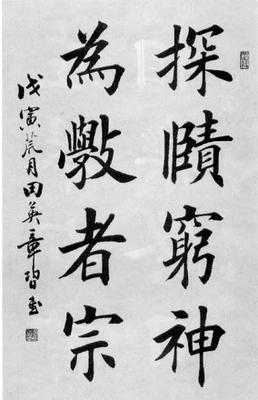 探賾窮神
為斅者宗
戊寅荒月田英章習書